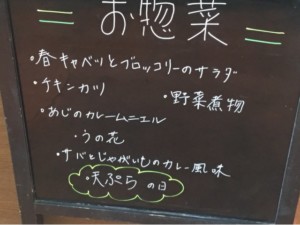 お惣菜
・春キャベツとブロッコリーのサラダ
・チキンカツ
・野菜煮物
・あじのカレームニエル
・うの花
・サバとじゃがいものカレー風味
・天ぷらの日